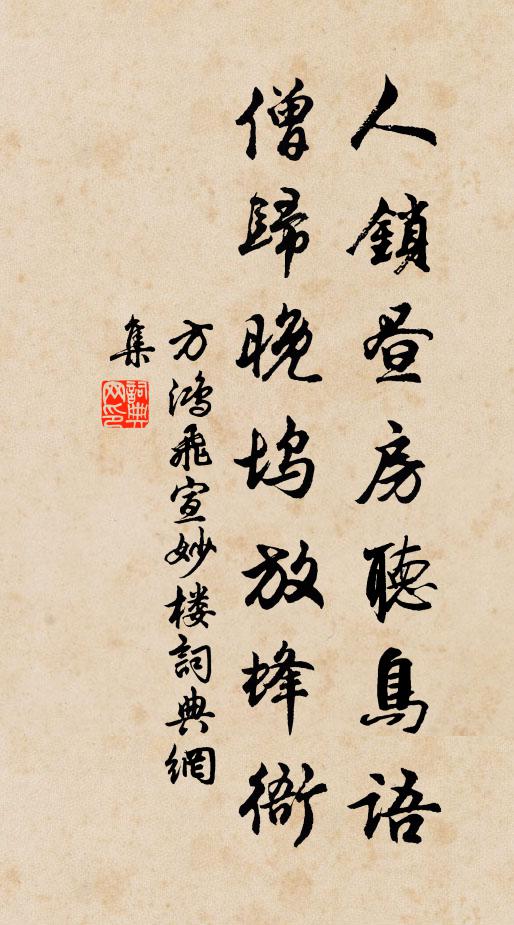 人鎖昼房聽鳥語
僧歸晚坞放蜂衙
方鴻飛宣妙楼詞典網
集
詞典
网印